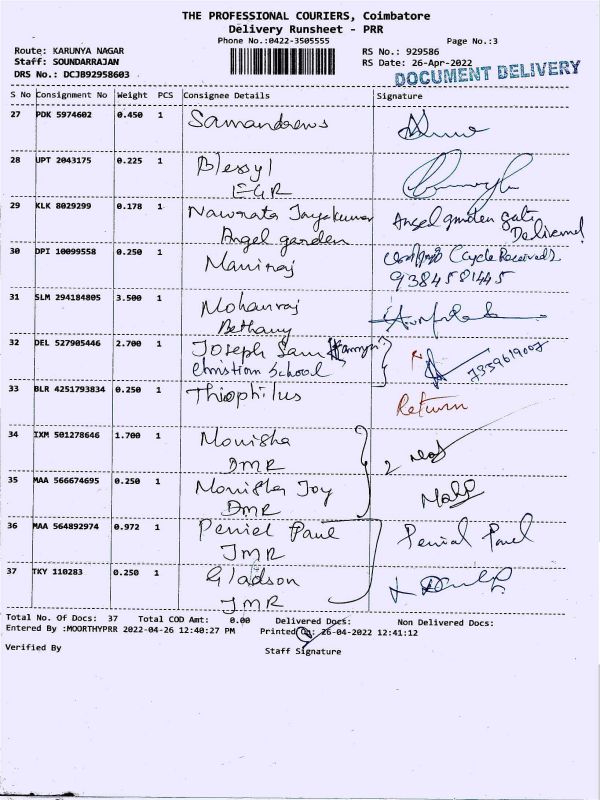 THE PROFESSIONAL COURIERS, Coimbatore
Delivery Runsheet - PRR
Phone No.:0422-3505555
Page No.:3
Route: KARUNYA NAGAR
RS No.: 929586
Staff: SOUNDARRAJAN
RS Date: 26-Apr-2022
DRS No.: DCJB92958603
DOCUMENT DELIVERY
S No Consignment No Weight PCS Consignee Details Signature
27 PDK 5974602 0.450 1 Samandrews
28 UPT 2043175 0.225 1 Blessyl
EGR
29 KLK 8029299 0.178 1 Nawrata Jayakumar Angel garden gate
Angel garden Delivered
30 DPI 10099558 0.250 1 Maniraj (cycle Received)
9384581445
31 SLM 294184805 3.500 1 Mohanraj
Bethany
32 DEL 527905446 2.700 1 Joseph Sam
Christian School 7339619007
33 BLR 4251793834 0.250 1 Thiophilus Return
34 IXM 501278646 1.700 1 Monisha 2
DMR
35 MAA 566674695 0.250 1 Monisha Joy
DMR
36 MAA 564892974 0.972 1 Peniel Paul Penial Paul
JMR
37 TKY 110283 0.250 1 Gladson
JMR
Total No. Of Docs: 37 Total COD Amt: 0.00 Delivered Docs: Non Delivered Docs:
Entered By :MOORTHYPRR 2022-04-26 12:40:27 PM Printed On: 26-04-2022 12:41:12
Verified By
Staff Signature